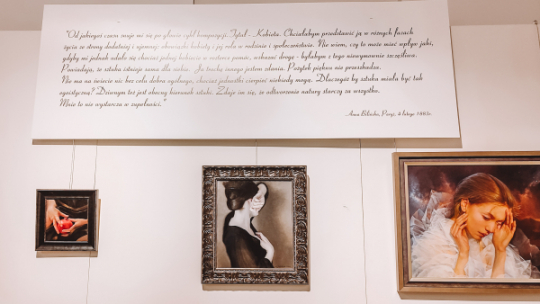 "Od jakiegoś czasu snuje mi się po głowie cykl kompozycji. Tytuł - Kobieta. Chciałabym przedstawić ją w różnych fazach
życia ze strony dodatniej i ujemnej: obowiązki kobiety i jej rola w rodzinie i społeczeństwie. Nie wiem, czy to może mieć wpływ jaki,
gdyby mi jednak udało się choćby jedną kobietę w naturze poruszyć, wskazać drogę - byłabym z tego niewymownie szczęśliwa.
Powiadają, że sztuka istnieje sama dla siebie. Ja trochę innego jestem zdania. Pożytek pięknu nie przeszkadza.
Nie ma na świecie nic bez celu dobra ogólnego, chociaż jednostki cierpieć niekiedy mogą. Dlaczegóż by sztuka miała być tak
egoistyczną? Dziwnym też jest obecny kierunek sztuki. Zdaje im się, że odtworzenie natury starczy za wszystko.
Mnie to nie wystarcza w zupełności."
Anna Bilińska, Paryż, 4 lutego 1885r.